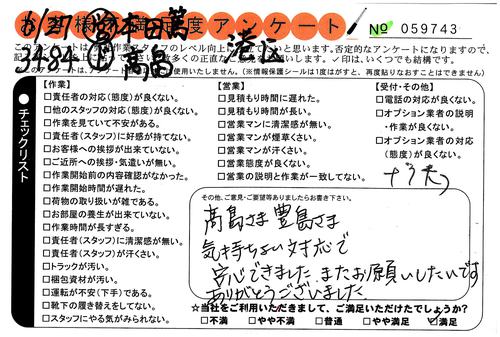 お客様の満足度アンケート
№ 059743
6/27
港区
3484
高畠
✓印は、いくつでも結構です。
このアンケートは、
使用いたしません。(※情報保護シールは1度はがすと、再度貼りなおすことはできません)
チェックリスト
【作業】
□責任者の対応(態度)が良くない。
□他のスタッフの対応(態度)が良くない。
□作業を見ていて不安がある。
□責任者(スタッフ)に好感が持てない。
□お客様への挨拶が出来ていない。
□ご近所への挨拶・気遣いが無い。
□作業開始前の内容確認がなかった。
□作業開始時間が遅れた。
□荷物の取り扱いが雑である。
□お部屋の養生が出来ていない。
□作業時間が長すぎる。
□責任者(スタッフ)に清潔感が無い。
□責任者(スタッフ)が汗くさい。
□トラックが汚い。
□梱包資材が汚い。
□運転が不安(下手)である。
□靴下の履き替えをしてない。
□スタッフにやる気がみられない。
【営業】
□見積もり時間に遅れた。
□見積もり時間が長い。
□営業マンに清潔感が無い。
□営業マンが煙草くさい。
□営業マンが汗くさい。
□営業態度が良くない。
□営業の説明と作業が一致してない。
【受付・その他】
□電話の対応が良くない。
□オプション業者の説明
・作業が良くない。
□オプション業者の対応
(態度)が良くない。
その他、ご意見・ご要望等ありましたらお書き下さい。
髙島さま 豊島さま
気持ちよい対応で
安心できました。またお願いしたいです
ありがとうございました。
☆当社をご利用いただきまして、ご満足いただけたでしょうか?
□不満 □やや不満 □普通 □やや満足 ☑満足